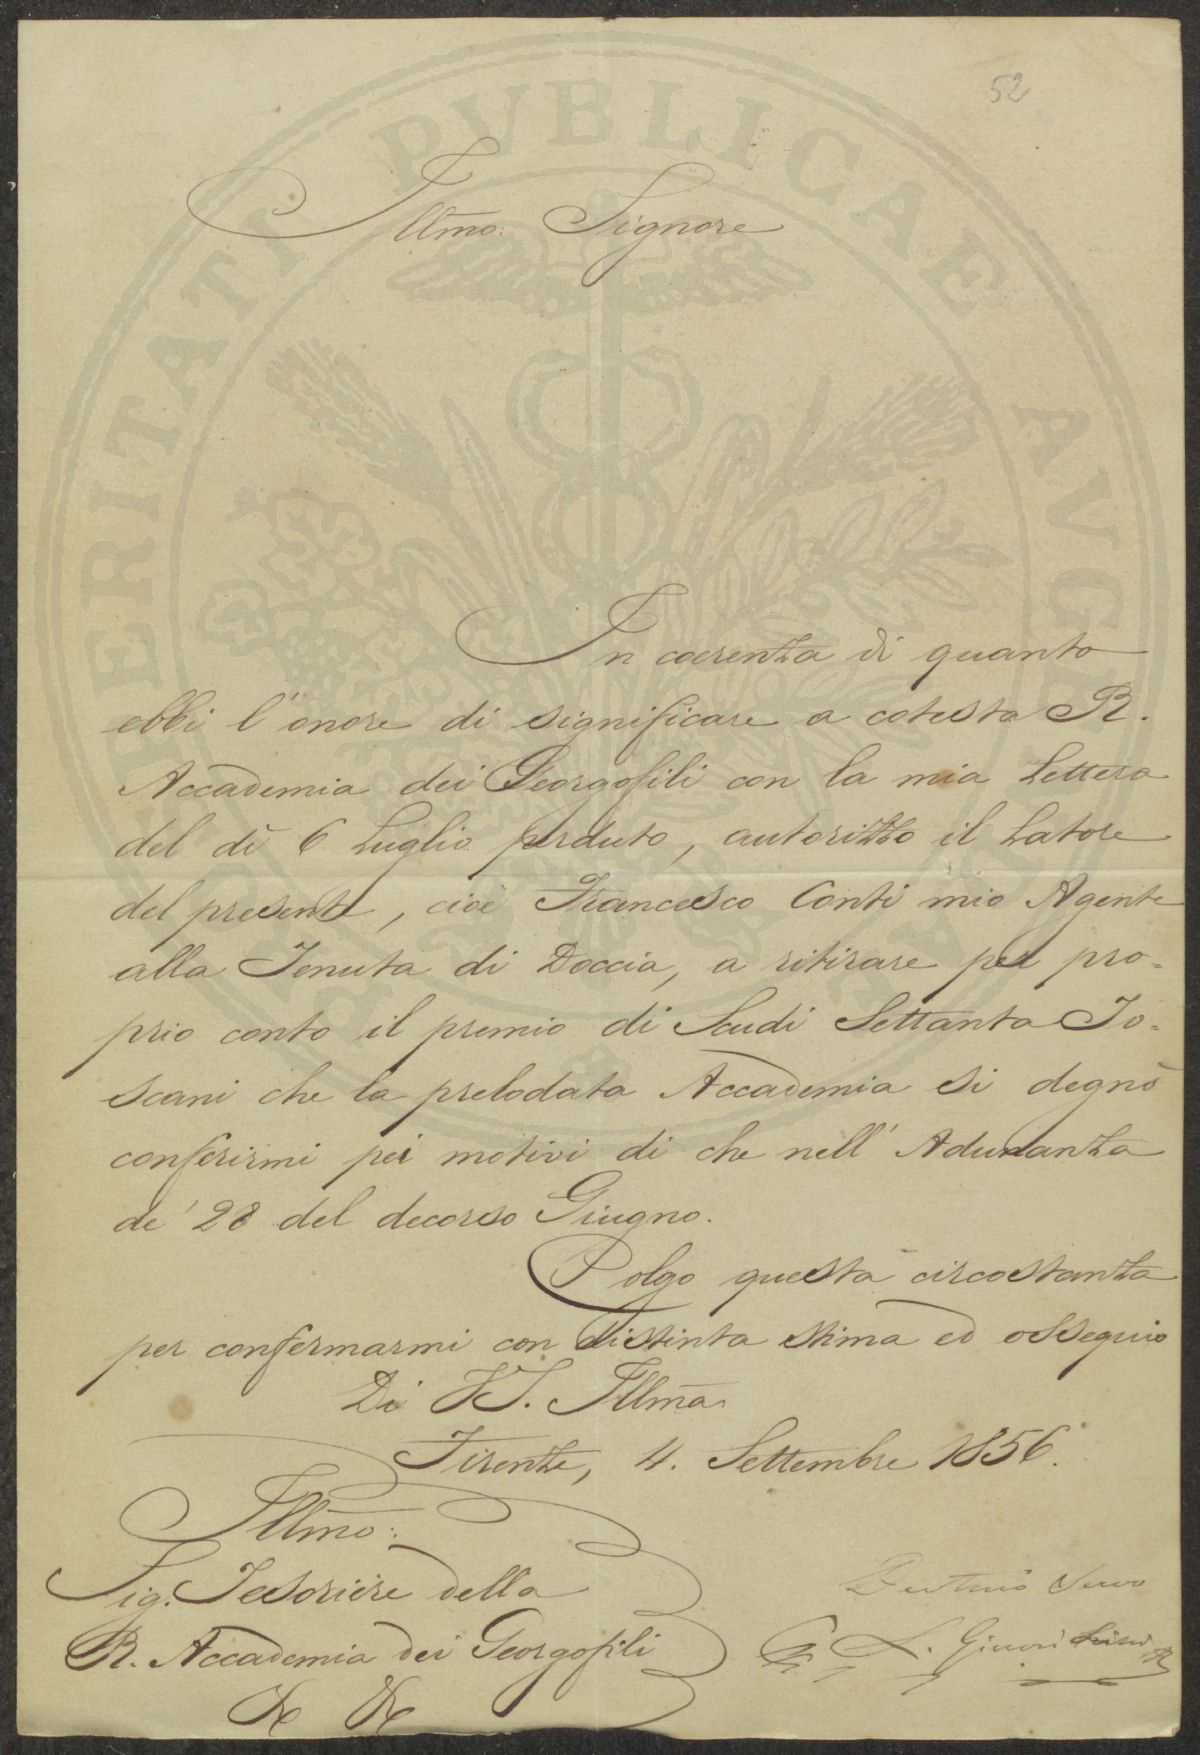 52
Illmo: Signore
In coerenza di quanto
ebbi l'onore di significare a cotesta R.
Accademia dei Georgofili con la mia Lettera
del dì 6 Luglio perduto, autorizzo il Latore
del presente, cioè Francesco Conti mio Agente
alla Tenuta di Doccia, a ritirare per pro=
prio conto il premio di Scudi Settanta To=
scani che la prelodata Accademia si degnò
conferirmi pei motivi di che nell'Adunanza
de' 28 del decorso Giugno.
Colgo questa circostanza
per confermarmi con distinta stima ed ossequio
Di VS. Illma.
Firenze, 4. Settembre 1856.
Illmo:
Sig. Tesoriere della
R. Accademia dei Georgofili
Servo
L. Ginori Lisci
PROSPERITATI PVBLICAE AVGENDAE